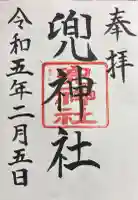 奉拝
兜神社
令和五年二月五日